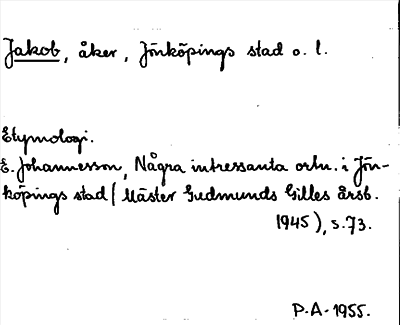 Jakob, åker, Jönköpings stad o. l.
Etymologi.
E. Johannesson, Några intressanta ortn. i Jön-
köpings stad (Mäster Gudmunds Gilles årsb.
1945), s. 73.
P.A. 1955.